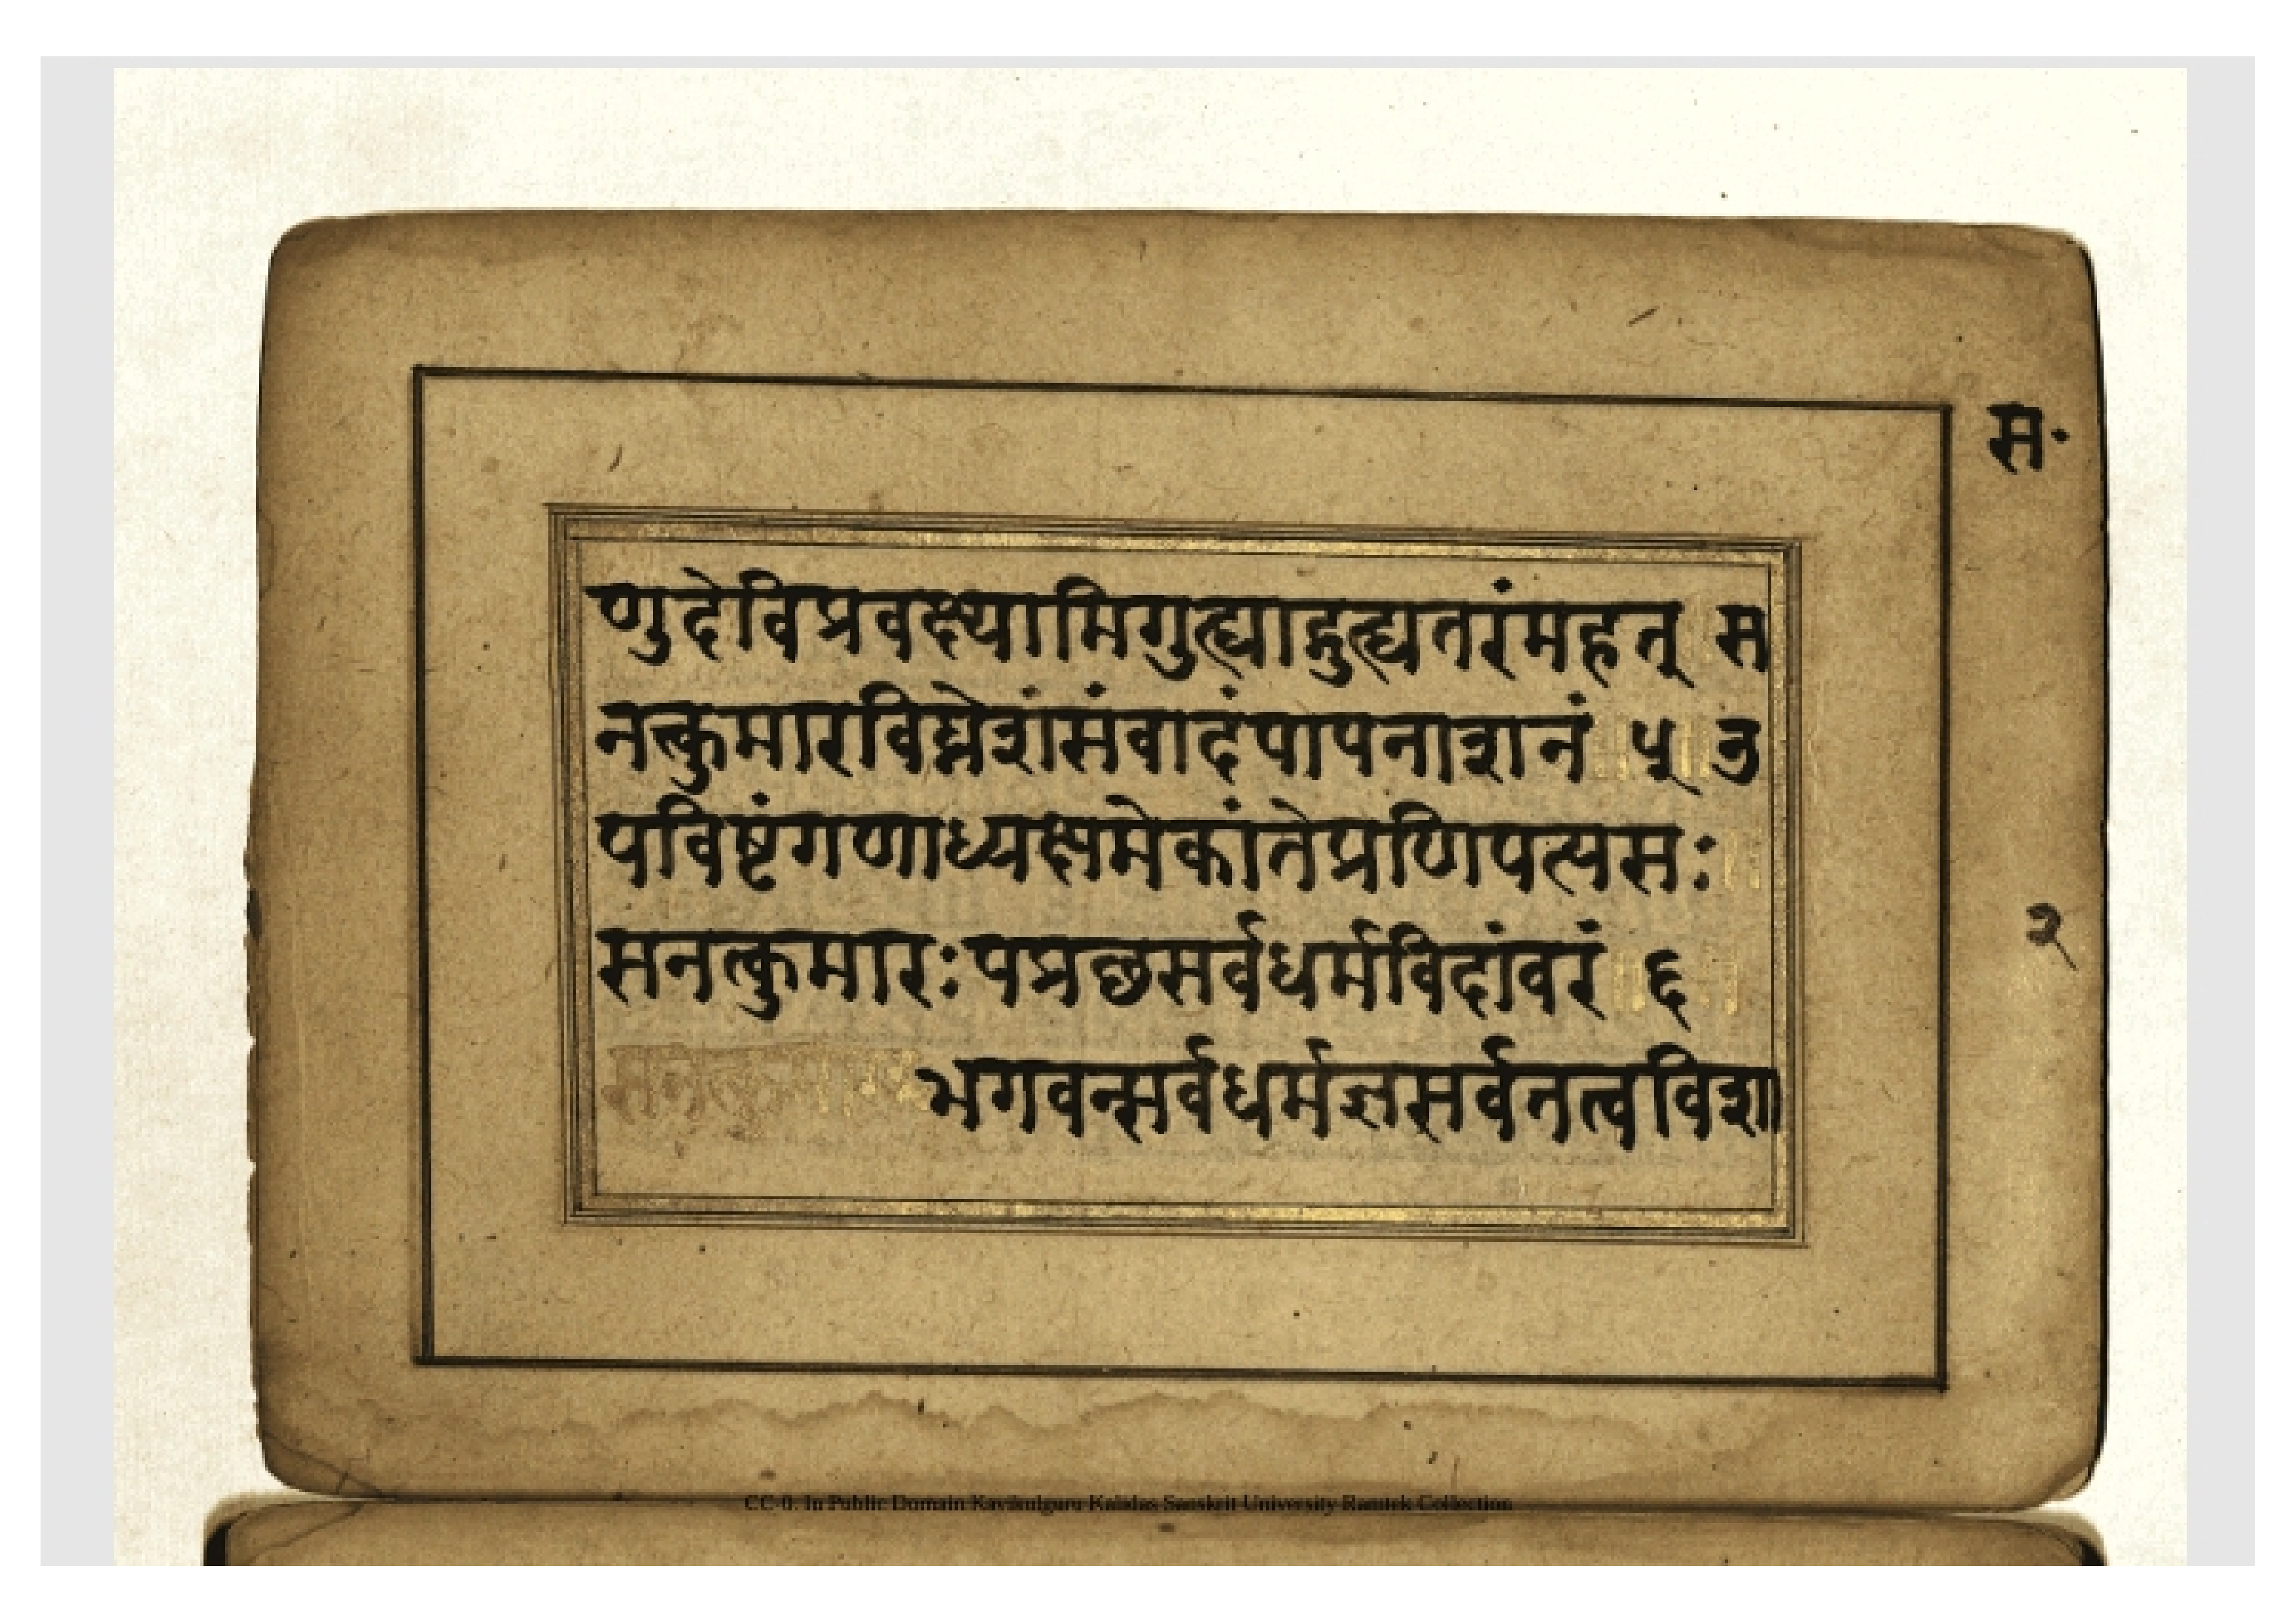 स॰
णुदेविप्रवक्ष्यामिगुह्याद्गुह्यतरंमहत् ॥ स
नत्कुमारविघ्नेशंसंवादंपापनाशनं ॥ ५ ॥ उ
पविष्टंगणाध्यक्षमेकांतेप्रणिपत्यसः ॥
सनत्कुमारःपप्रछसर्वधर्मविदांवरं ॥ ६ ॥
भगवन्सर्वधर्मज्ञसर्वतत्वविशा
२
CC-0. In Public Domain Kavikulguru Kalidas Sanskrit University Ramtek Collection